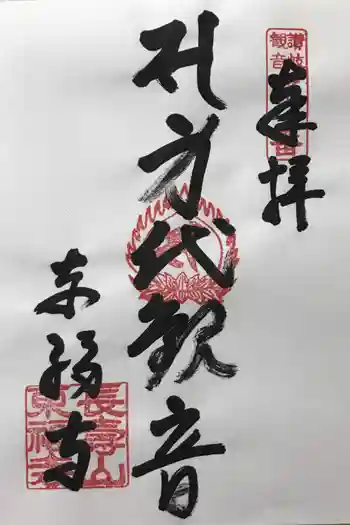 讃岐
観音
奉拝
代観音
東福寺
長寿山
東福寺